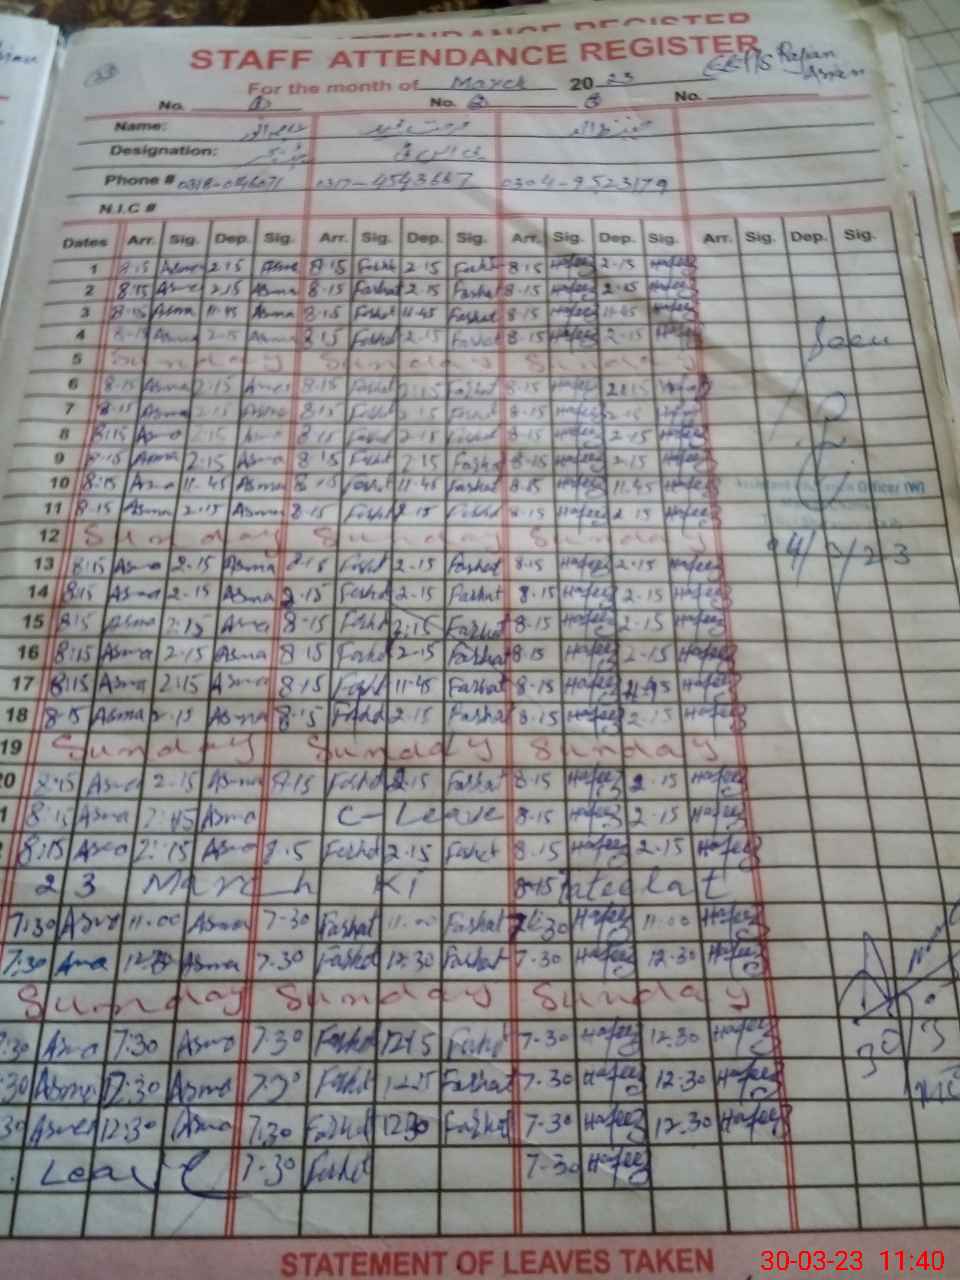 ATTENDANCE REGISTER
STAFF ATTENDANCE REGISTER
For the month of March 20 23
No. 1 No. 2 3 No.
Name:
Designation:
Phone # 0317-4543667 0304-9523179
N.I.C #
Dates Arr. Sig. Dep. Sig. Arr. Sig. Dep. Sig. Arr. Sig. Dep. Sig. Arr. Sig. Dep. Sig.
1 8:15 Asma 2:15 Asma 8:15 Farhat 2:15 Farhat 8-15 Hafeez 2-15 Hafeez
2 8:15 Asma 2:15 Asma 8-15 Farhat 2-15 Farhat 8-15 Hafeez 2-15 Hafeez
3 8:15 Asma 11-45 Asma 8-15 Farhat 11-45 Farhat 8-15 Hafeez 11-45 Hafeez
4 8-15 Asma 2-15 Asma 8:15 Farhat 2-15 Farhat 8-15 Hafeez 2-15 Hafeez
5 Sunday Sunday Sunday
6 8-15 Asma 2:15 Asma 8:15 Farhat 2:15 Farhat 8-15 Hafeez 2:15 Hafeez
7 8-15 Asma 2-15 Asma 8:15 Farhat 2-15 Farhat 8-15 Hafeez 2-15 Hafeez
8 8:15 Asma 2:15 Asma 8:15 Farhat 2-15 Farhat 8-15 Hafeez 2-15 Hafeez
9 8:15 Asma 2:15 Asma 8:15 Farhat 2:15 Farhat 8-15 Hafeez 2-15 Hafeez
10 8:15 Asma 11-45 Asma 8:15 Farhat 11-45 Farhat 8-15 Hafeez 11-45 Hafeez
11 8-15 Asma 2-15 Asma 8-15 Farhat 2-15 Farhat 8-15 Hafeez 2-15 Hafeez
12 Sunday Sunday Sunday
13 8:15 Asma 2-15 Asma 8-15 Farhat 2-15 Farhat 8-15 Hafeez 2-15 Hafeez
14 8:15 Asma 2-15 Asma 8-15 Farhat 2-15 Farhat 8-15 Hafeez 2-15 Hafeez
15 8:15 Asma 2:15 Asma 8-15 Farhat 2:15 Farhat 8-15 Hafeez 2-15 Hafeez
16 8:15 Asma 2-15 Asma 8-15 Farhat 2-15 Farhat 8-15 Hafeez 2-15 Hafeez
17 8:15 Asma 2:15 Asma 8-15 Farhat 11-45 Farhat 8-15 Hafeez 11-45 Hafeez
18 8-15 Asma 2-15 Asma 8-15 Farhat 2-15 Farhat 8-15 Hafeez 2-15 Hafeez
19 Sunday Sunday Sunday
20 8:15 Asma 2:15 Asma 8-15 Farhat 2-15 Farhat 8-15 Hafeez 2-15 Hafeez
8:15 Asma 2:45 Asma C-Leave 8-15 Hafeez 2-15 Hafeez
8:15 Asma 2:15 Asma 8-5 Farhat 2-15 Farhat 8-15 Hafeez 2-15 Hafeez
23 March Ki 8-15 Tateelat
7:30 Asma 11-00 Asma 7-30 Farhat 11-00 Farhat 7-30 Hafeez 11-00 Hafeez
7:30 Asma 12-30 Asma 7-30 Farhat 12-30 Farhat 7-30 Hafeez 12-30 Hafeez
Sunday Sunday Sunday
7:30 Asma 7:30 Asma 7:30 Farhat 1215 Farhat 7-30 Hafeez 12-30 Hafeez
:30 Asma 12:30 Asma 7:30 Farhat Farhat 7-30 Hafeez 12-30 Hafeez
30 Asma 12:30 Asma 7:30 Farhat 1230 Farhat 7-30 Hafeez 12-30 Hafeez
Leave 7-30 Farhat 7-30 Hafeez
Seen
STATEMENT OF LEAVES TAKEN
30-03-23 11:40